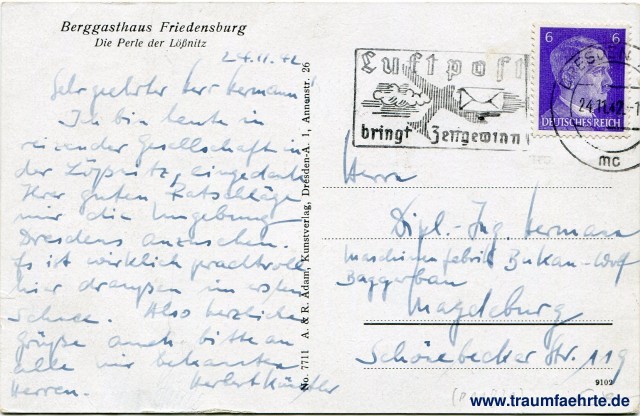 Berggasthaus Friedensburg
Die Perle der Lößnitz
24.11.42
Sehr geehrter Herr Hermann!
Ich bin heute in
reizender Gesellschaft in
der Lößnitz, eingedenk
Ihrer guten Ratschläge
mir die Umgebung
Dresdens anzusehen.
Es ist wirklich prachtvoll
hier draußen im ersten
Schnee. Also herzliche
Grüße auch bitte an
alle mir bekannten
Herren.
No. 7711 A. & R. Adam, Kunstverlag, Dresden-A. 1, Annenstr. 26
Luftpost
bringt Zeitgewinn
DRESDEN
24.11.42
mc
6 6
DEUTSCHES REICH
Herrn
Dipl.-Ing. Hermann
Maschinenfabrik Buckau-Wolf
Baggerbau
Magdeburg
Schönebecker Str. 119
9102
www.traumfaehrte.de